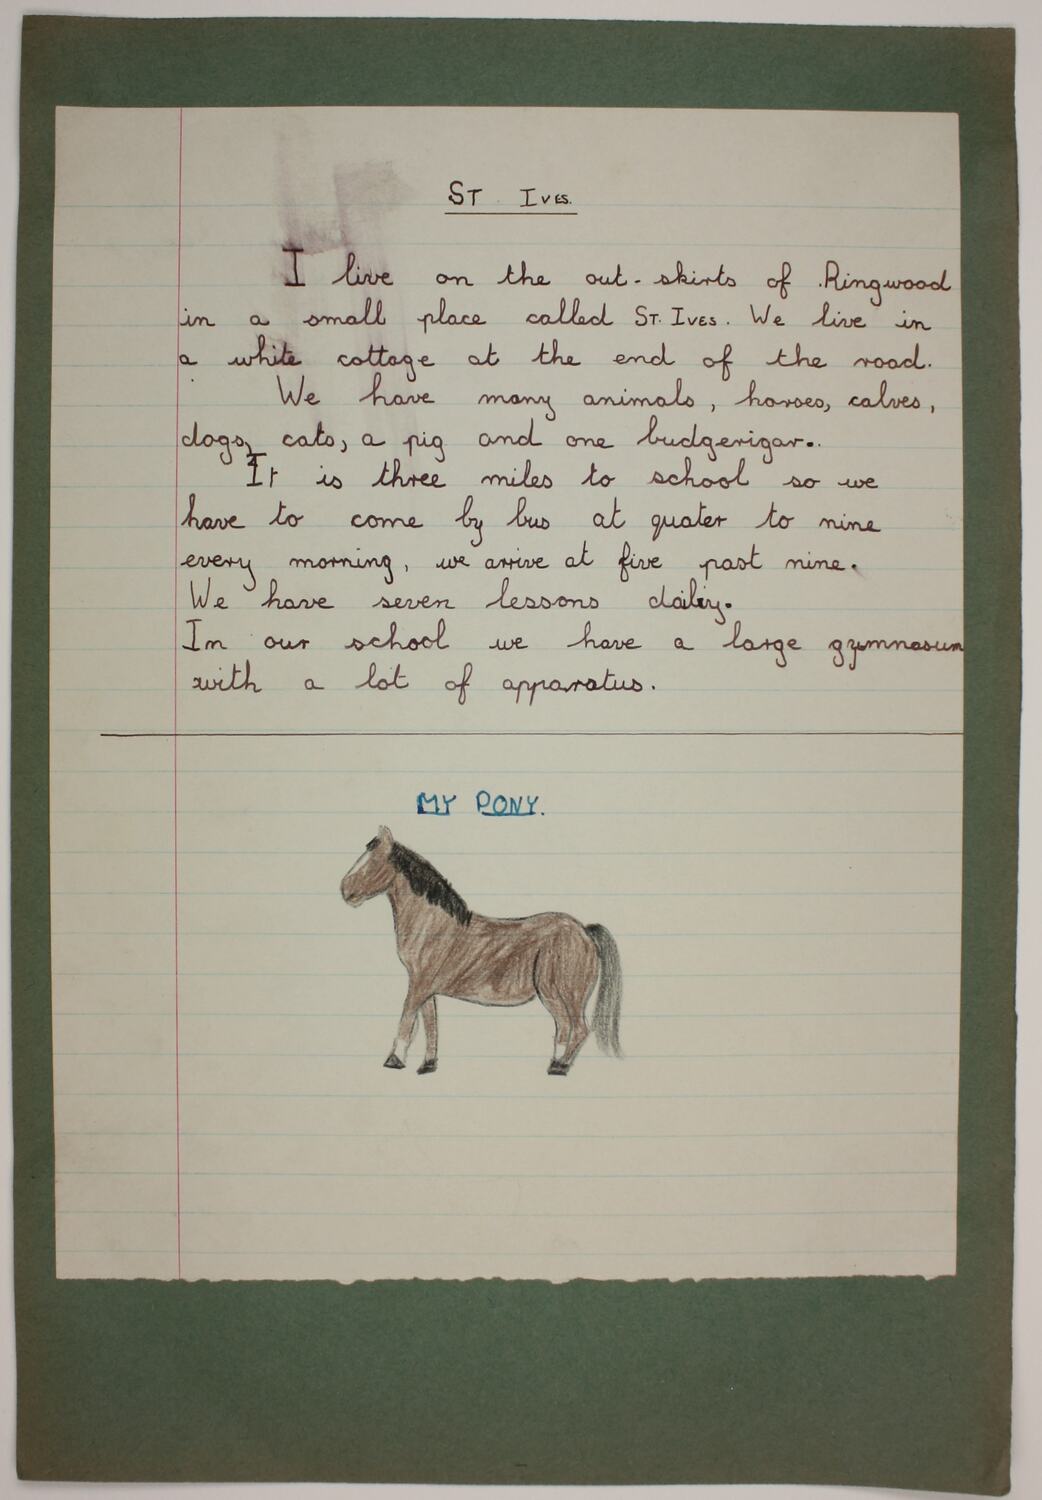 ST. IVES.
I live on the out-skirts of Ringwood
in a small place called ST. IVES. We live in
a white cottage at the end of the road.
We have many animals, horses, calves,
dogs, cats, a pig and one budgerigar.
It is three miles to school so we
have to come by bus at quater to nine
every morning, we arrive at five past nine.
We have seven lessons daily.
In our school we have a large gymnasum
with a lot of apparatus.
MY PONY.